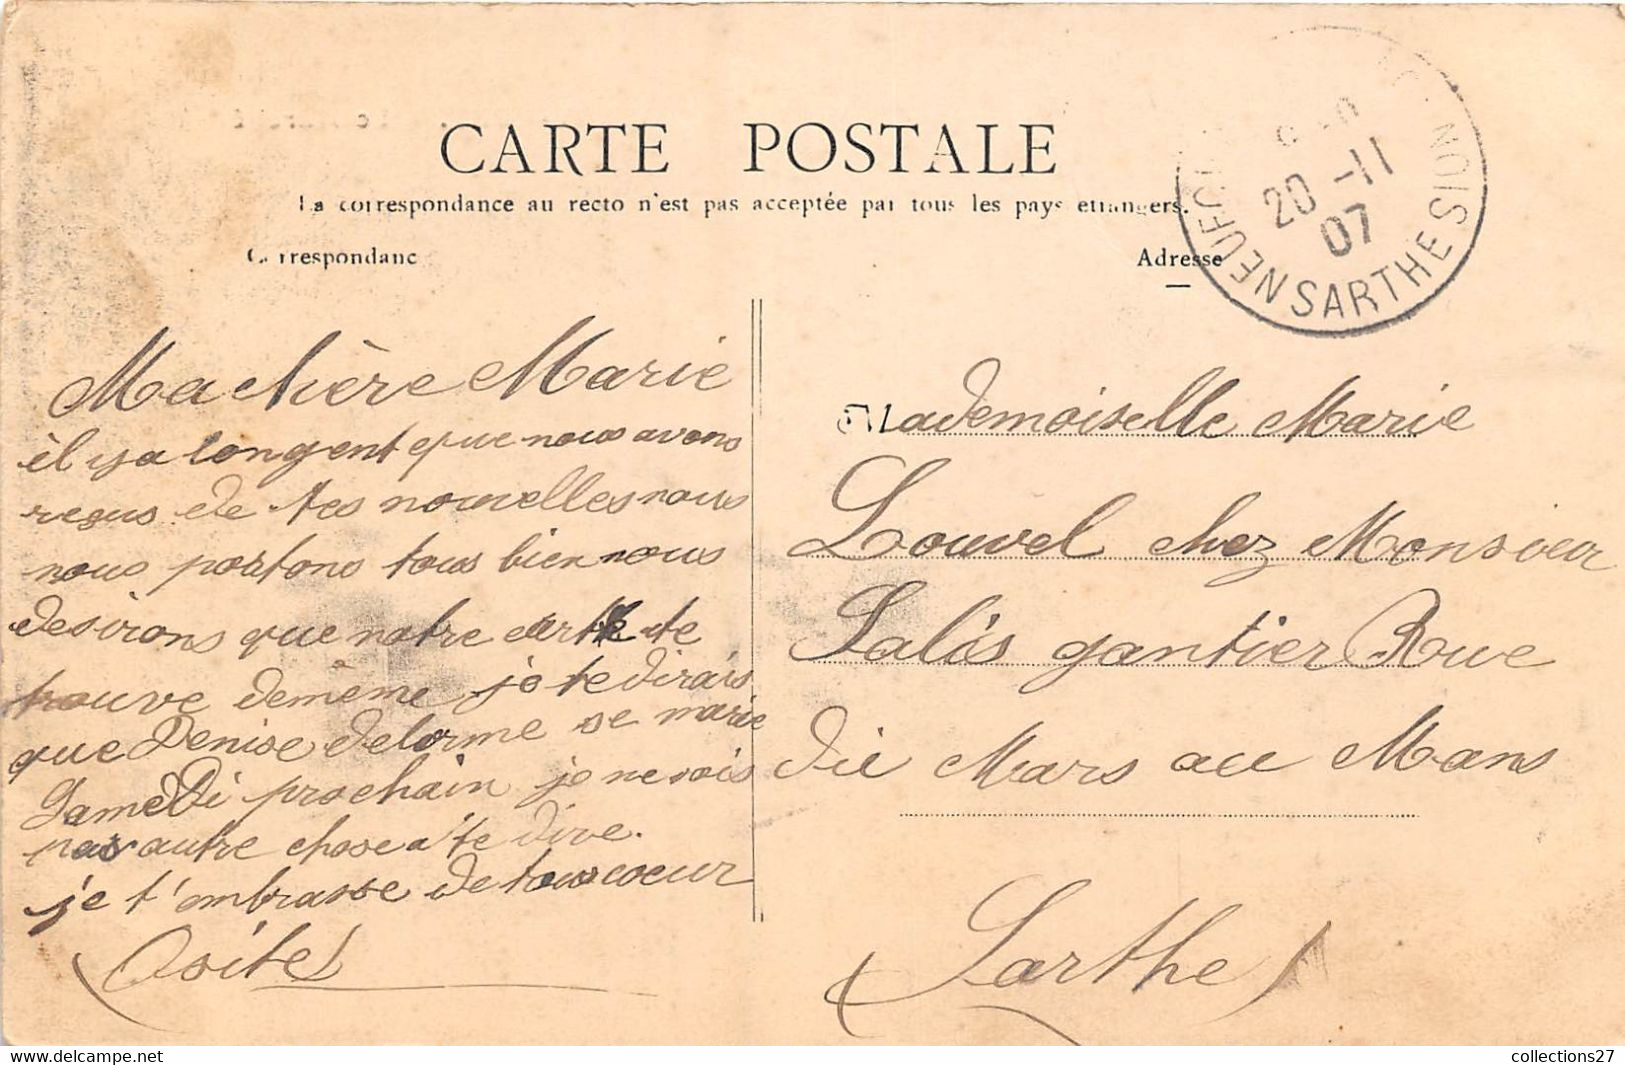 CARTE POSTALE
La correspondance au recto n'est pas acceptée par tous les pays etrangers.
Correspondanc
Adresse
20 -11
07
SARTHE
Ma chère Marie
il y a longent que nous avons
reçus de tes nouvelles nous
nous portons tous bien nous
desirons que notre carte te
trouve demême je te dirais
que Denise Delorme se marie
Samedi prochain je ne vois
pas autre chose a te dire.
je t'embrasse de tous coeur
Mademoiselle Marie
Louvel chez Monsieur
Salis gantier Rue
die Mars au Mans
Sarthe
collections27